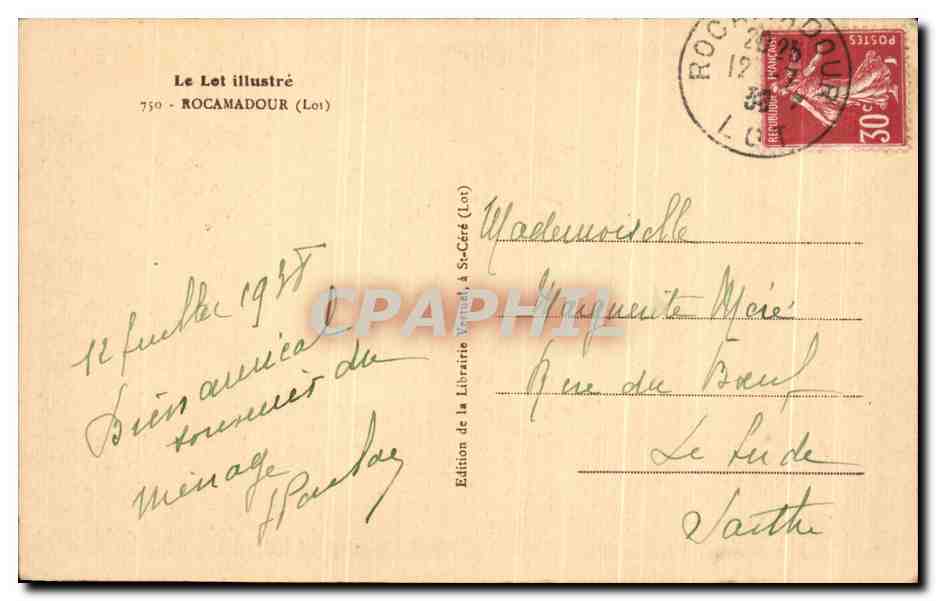 Le Lot illustré
750 - ROCAMADOUR (Lot)
ROCAMADOUR
12 - 7
38
LOT
POSTES
REPUBLIQUE FRANÇAISE
30c
12 Juillet 1938
Bien amical
souvenir du
ménage
Edition de la Librairie Vertuel, à St-Céré (Lot)
CPAPHIL
Mademoiselle
Marguerite Méré
Rue du Bœuf
Le Lude
Sarthe